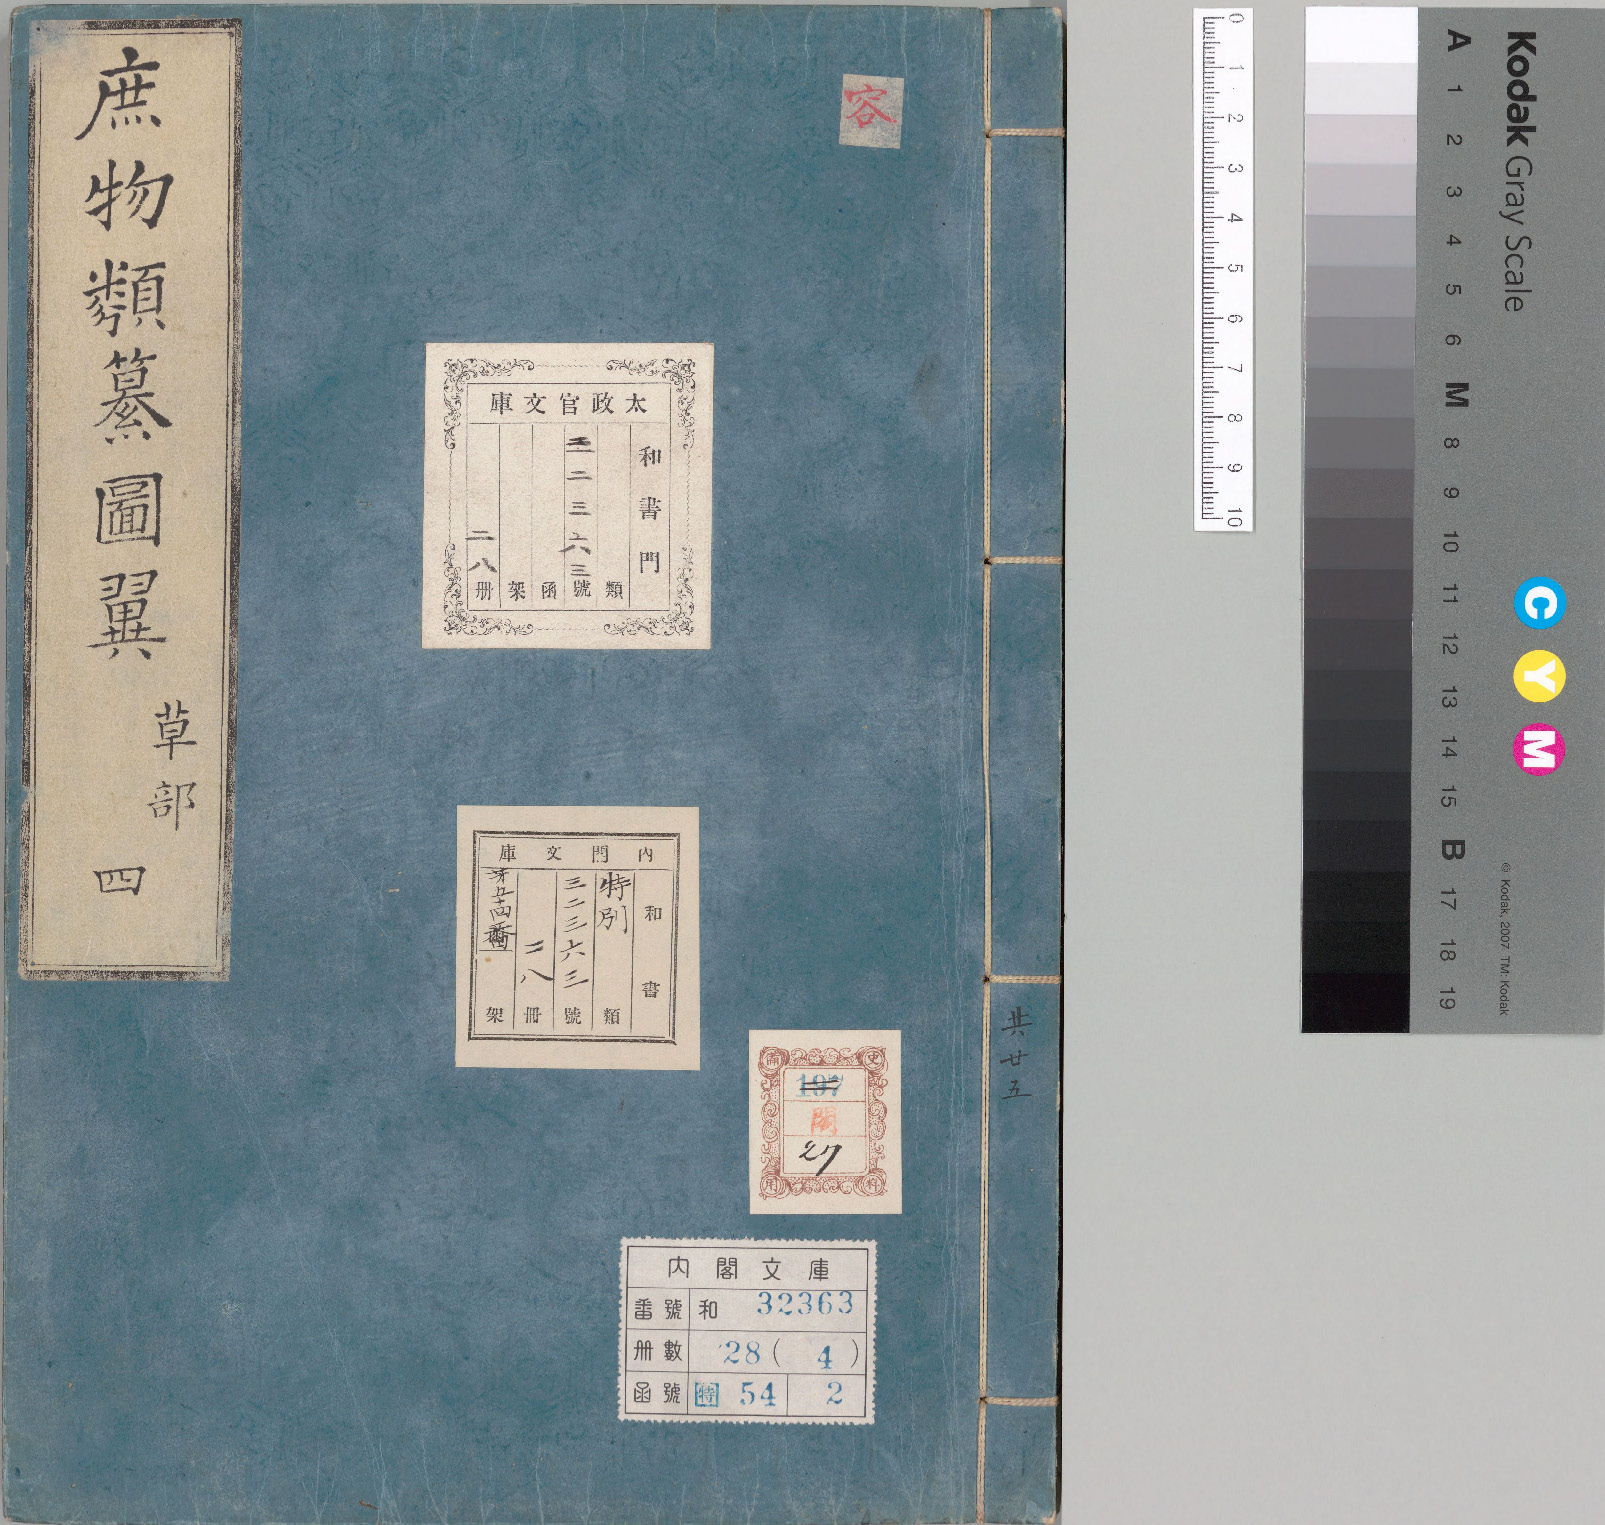 庶物類纂圖翼
草部
四
容
太政官文庫
和書門
類
二三六三號
函
架
二八册
内閣文庫
和書
特別類
三二三六三號
二八冊
架
共廿五
197
閣
27
内閣文庫
番號 和 32363
册數 28 ( 4 )
函號 特 54 2
0 1 2 3 4 5 6 7 8 9 10
Kodak Gray Scale
A 1 2 3 4 5 6 M 8 9 10 11 12 13 14 15 B 17 18 19
C Y M
© Kodak, 2007 TM: Kodak